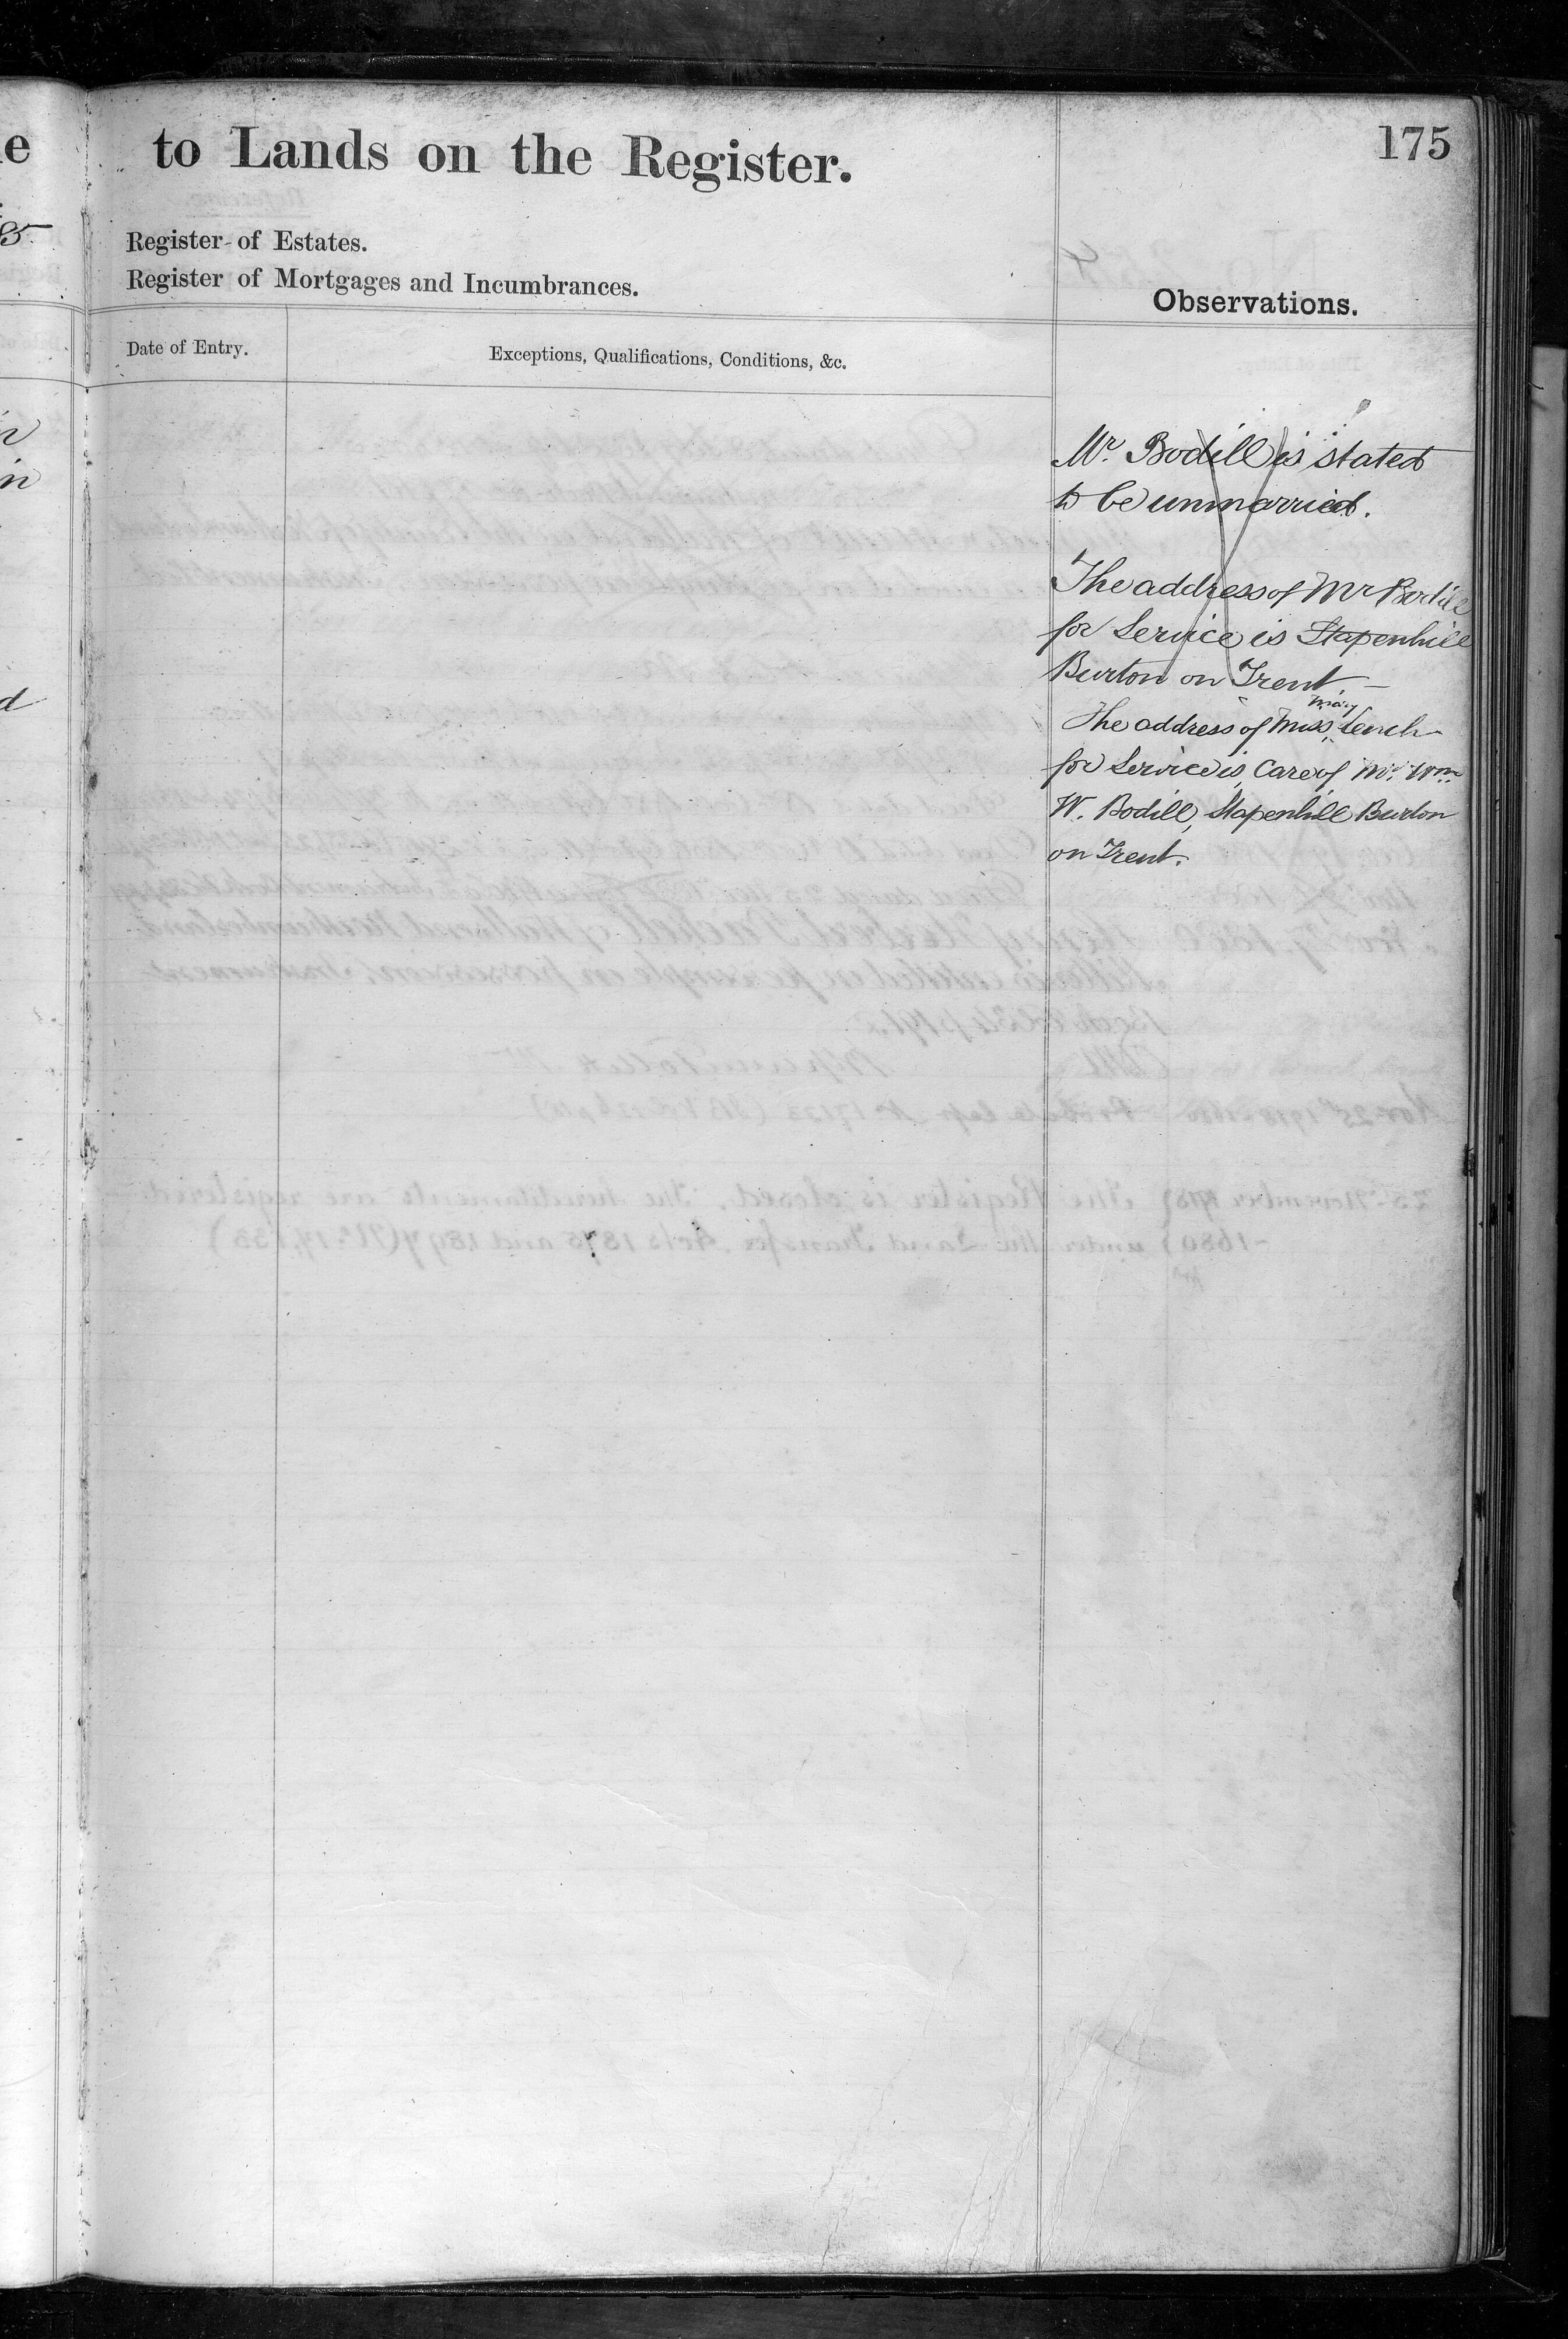 175
to Lands on the Register.
Register of Estates.
Register of Mortgages and Incumbrances.
Observations.
Date of Entry.
Exceptions, Qualifications, Conditions, &c.
Mr. Bodill is stated
to be unmarried.
The address of Mr Bodill
for Service is Stapenhill
Burton on Trent
The address of Miss Mary Lench
for Service is, Care of Mr. Wm.
W. Bodill, Stapenhill Burton
on Trent.